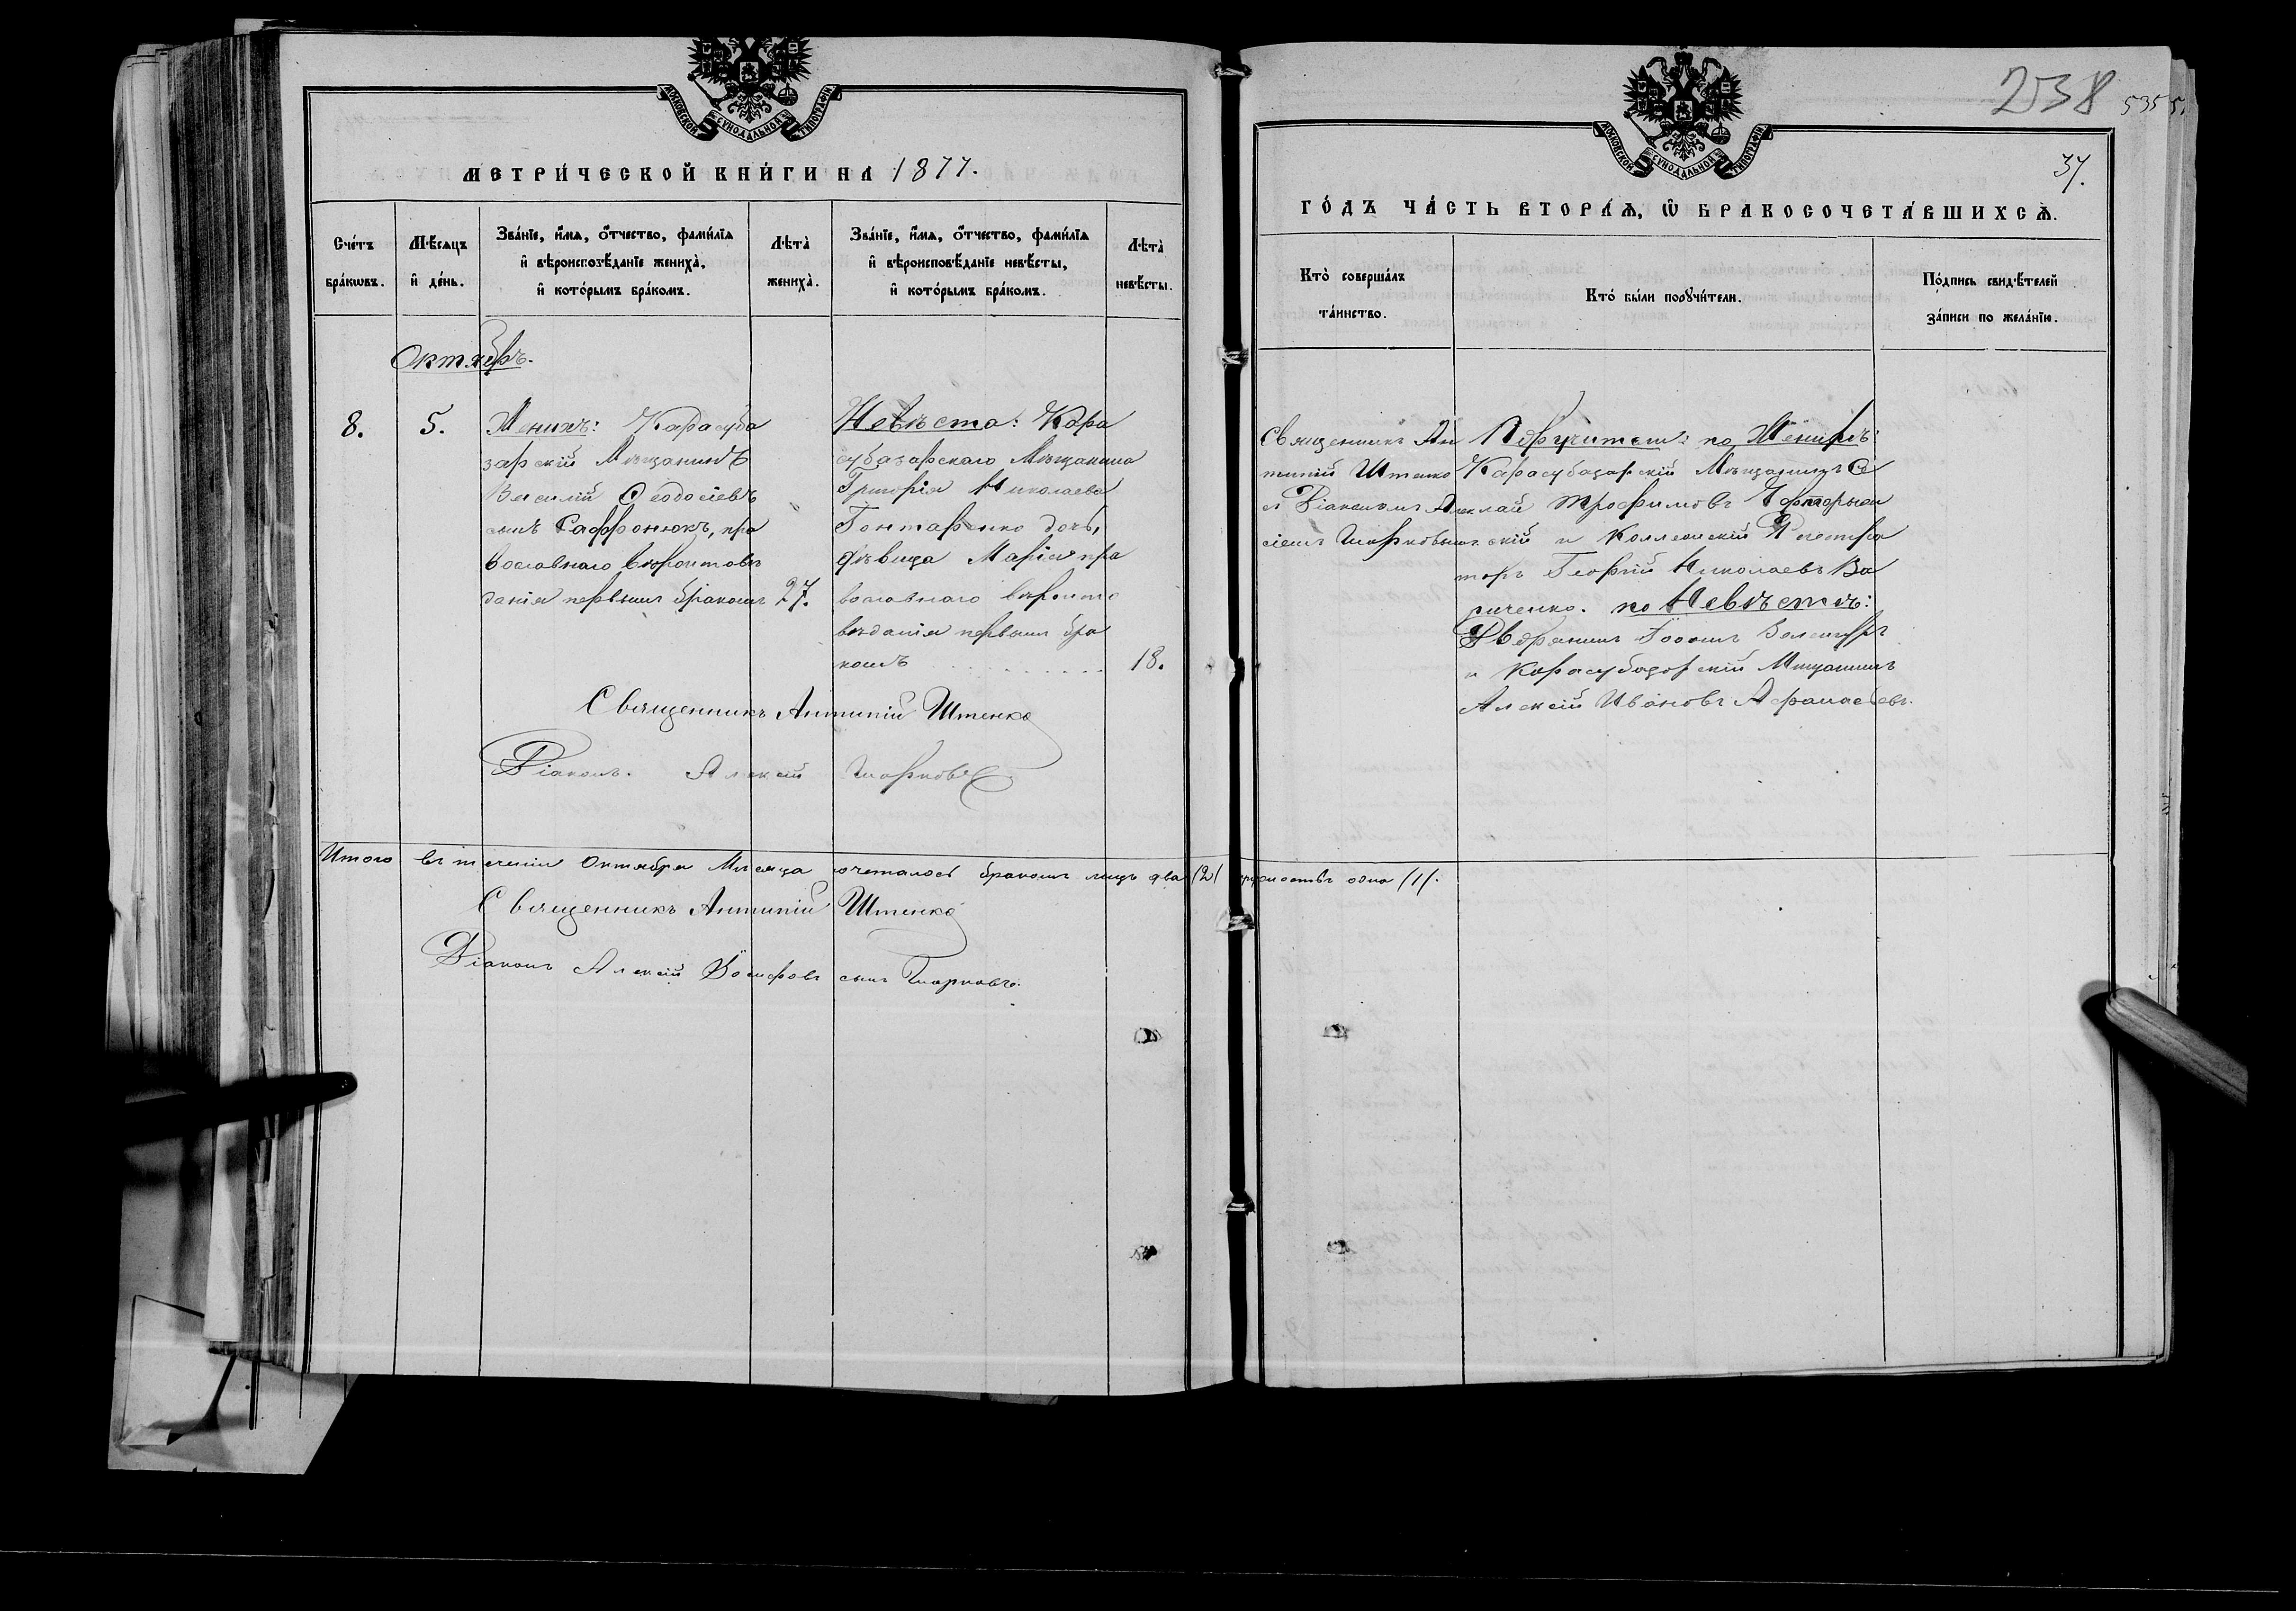 МОСКОВСКОЙ СѴНОДАЛЬНОЙ ТИПОГРАФІИ
МЕТРИ́ЧЕСКОЙ КНИ́ГИ НА 1877.
Сче́тъ бра́кѡвъ.
Мѣ́сяцъ и҆ де́нь.
Зва́нїе, и҆́мя, ѻ҆́тчество, фами́лїя
и҆ вѣроисповѣ́данїе жениха̀,
и҆ кото́рымъ бра́комъ.
Лѣта̀ жениха̀.
Зва́нїе, и҆́мя, ѻ҆́тчество, фами́лїя
и҆ вѣроисповѣ́данїе невѣ́сты,
и҆ кото́рымъ бра́комъ.
Лѣта̀ невѣ́сты.
Октябрь.
8.
5.
Женихъ: Карасуба
зарскій Мѣщанинъ
Василій Ѳеодосіевъ
сынъ Саффонюкъ, пра
вославнаго вѣроисповѣ
данія первымъ бракомъ
27.
Невѣста: Кара
субазарскаго Мѣщанина
Григорія Николаева
Гонтаренко дочь,
дѣвица Марія пра
вославнаго вѣроиспо
вѣданія первымъ бра
комъ
18.
Священникъ Антипій Штенко
Діаконъ Алексій Шарковъ
Итого въ теченіи Октября Мѣсяца сочеталось бракомъ лицъ два (2) супружествъ одно (1).
Священникъ Антипій Штенко
Діаконъ Алексій Іосифовъ сынъ Шарковъ.
МОСКОВСКОЙ СѴНОДАЛЬНОЙ ТИПОГРАФІИ
238
535
37.
ГО́ДЪ ЧА́СТЬ ВТОРА́Я, Ѡ҆ БРАКОСОЧЕТА́ВШИХСЯ.
Кто̀ соверша́лъ
та́инство.
Кто̀ бы́ли порꙋчи́тели.
По́дпись свидѣ́телей
за́писи по жела́нїю.
Священникъ Ан
типій Штенко
съ Діакономъ Алек
сіемъ Шарковымъ.
Поручители: по Женихѣ:
Карасубазарскій Мѣщанинъ
Трофимовъ
скій и Коллежскій Регистра
торъ Георгій Николаевъ Ва
риченко. по Невѣстѣ:
Дворянинъ Іосифъ
и Карасубазарскій Мѣщанинъ
Алексій Ивановъ Афанасьевъ.